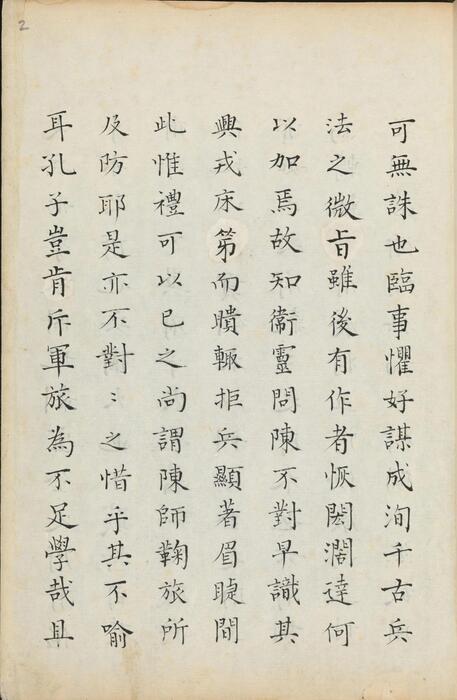 可無誅也臨事懼好謀成洵千古兵
法之微旨雖後有作者恢閎濶達何
以加焉故知衞靈問陳不對早識其
興戎床笫而聵輙拒兵顯著眉睫間
此惟禮可以已之尚謂陳師鞠旅所
及防耶是亦不對〻之惜乎其不喻
耳孔子豈肯斥軍旅為不足學哉且
2